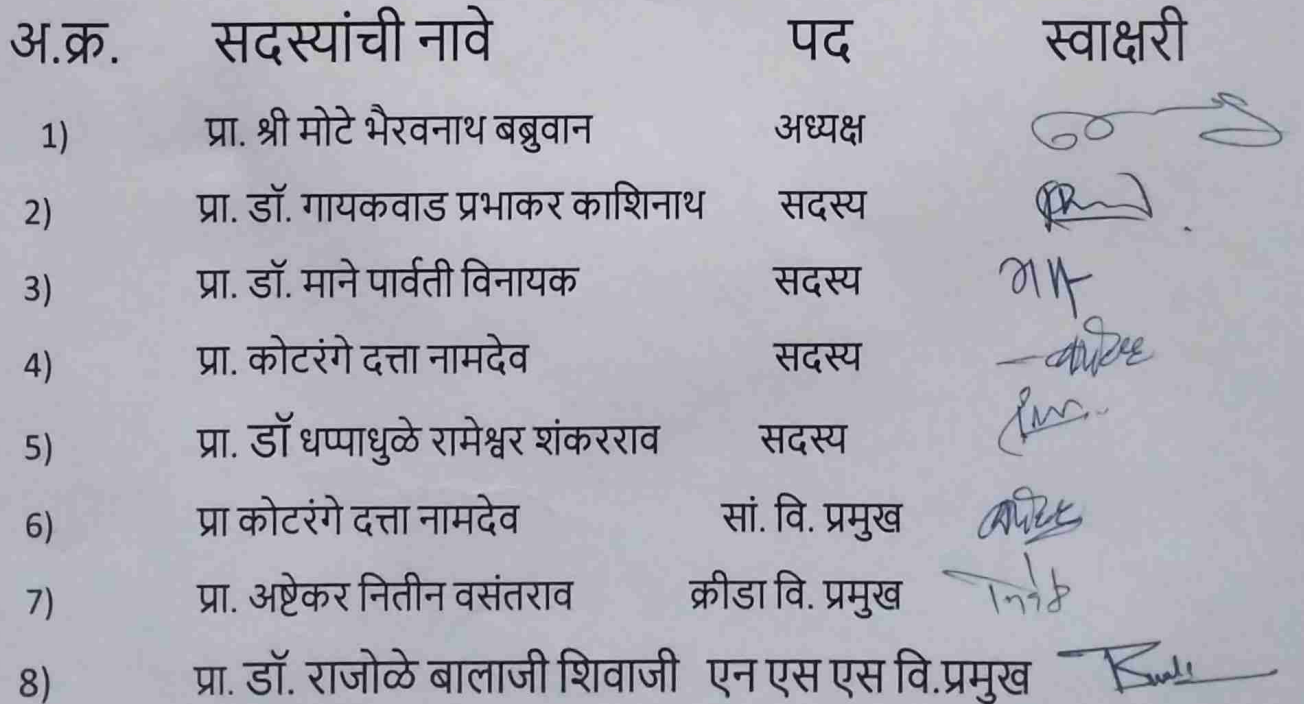 अ.क्र. सदस्यांची नावे पद स्वाक्षरी
1) प्रा. श्री मोटे भैरवनाथ बब्रुवान अध्यक्ष
2) प्रा. डॉ. गायकवाड प्रभाकर काशिनाथ सदस्य
3) प्रा. डॉ. माने पार्वती विनायक सदस्य
4) प्रा. कोटरंगे दत्ता नामदेव सदस्य
5) प्रा. डॉ धप्पाधुळे रामेश्वर शंकरराव सदस्य
6) प्रा कोटरंगे दत्ता नामदेव सां. वि. प्रमुख
7) प्रा. अष्टेकर नितीन वसंतराव क्रीडा वि. प्रमुख
8) प्रा. डॉ. राजोळे बालाजी शिवाजी एन एस एस वि.प्रमुख